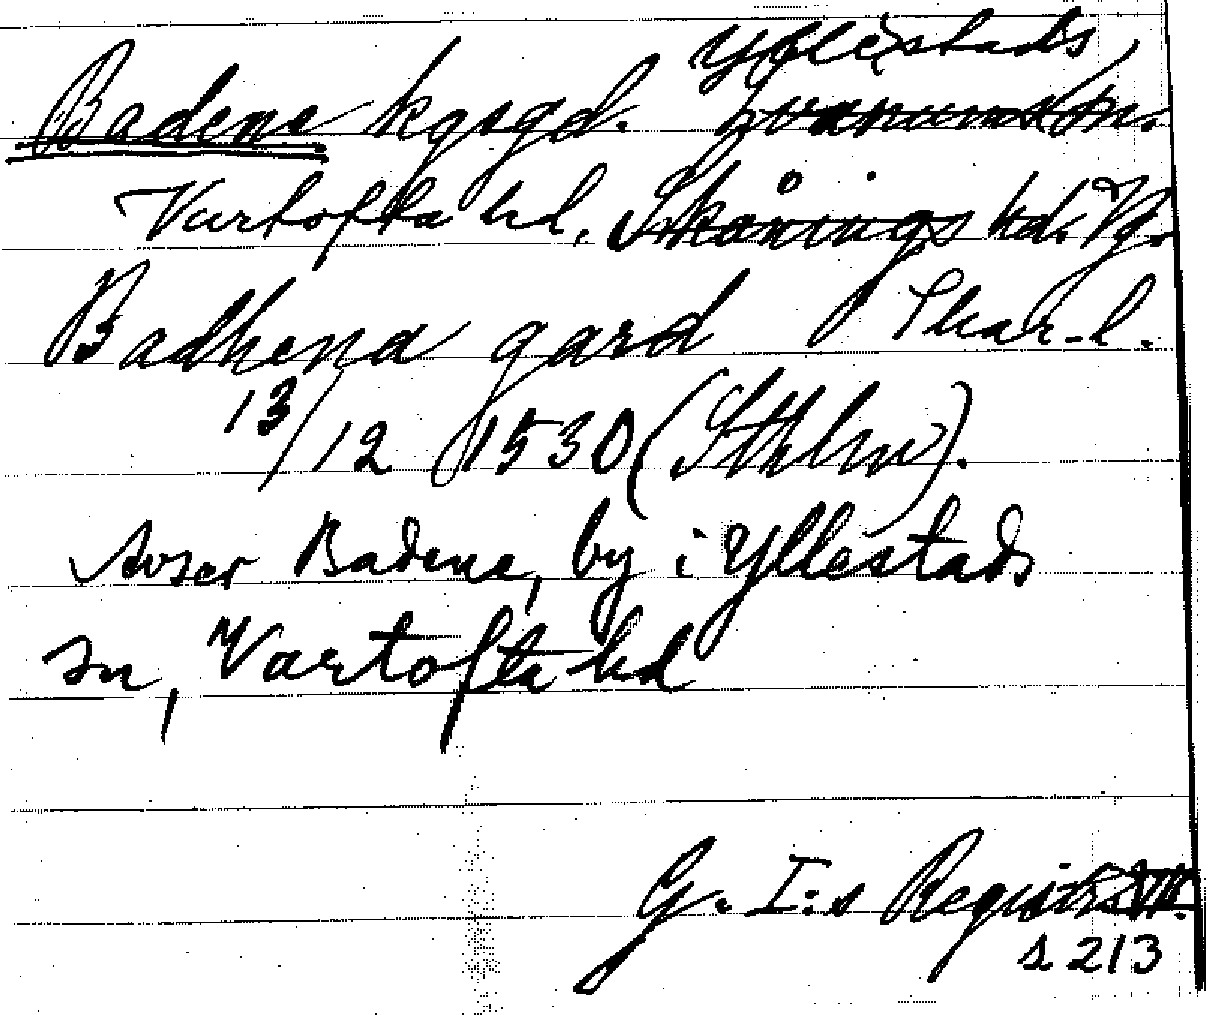 Yllestads
Badene kgsgd. Lvanums sn.
Vartofta hd. Skånings hd. Vg.
Badhena gard Skar. l.
13/12 1530 (Sthlm).
Avser Badene, by i Yllestads
sn, Vartofta hd
G. I:s Registr. VII.
s 213